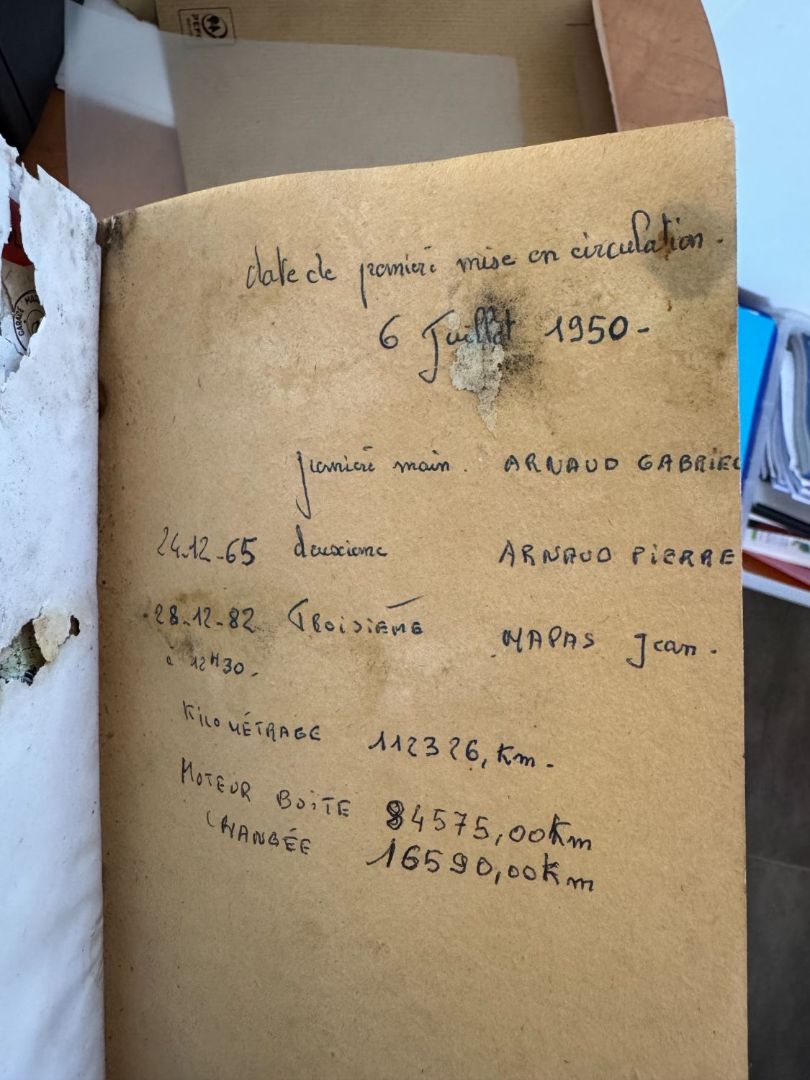 date de première mise en circulation.
6 Juillet 1950-
première main. ARNAUD GABRIEL
24-12-65 deuxieme ARNAUD PIERRE
28-12-82 TROISIÈME MAPAS Jean.
à 12H30.
KILOMÉTRAGE 112326, Km.
MOTEUR BOITE 84575,00Km
CHANGÉE 16590,00Km
GARAGE